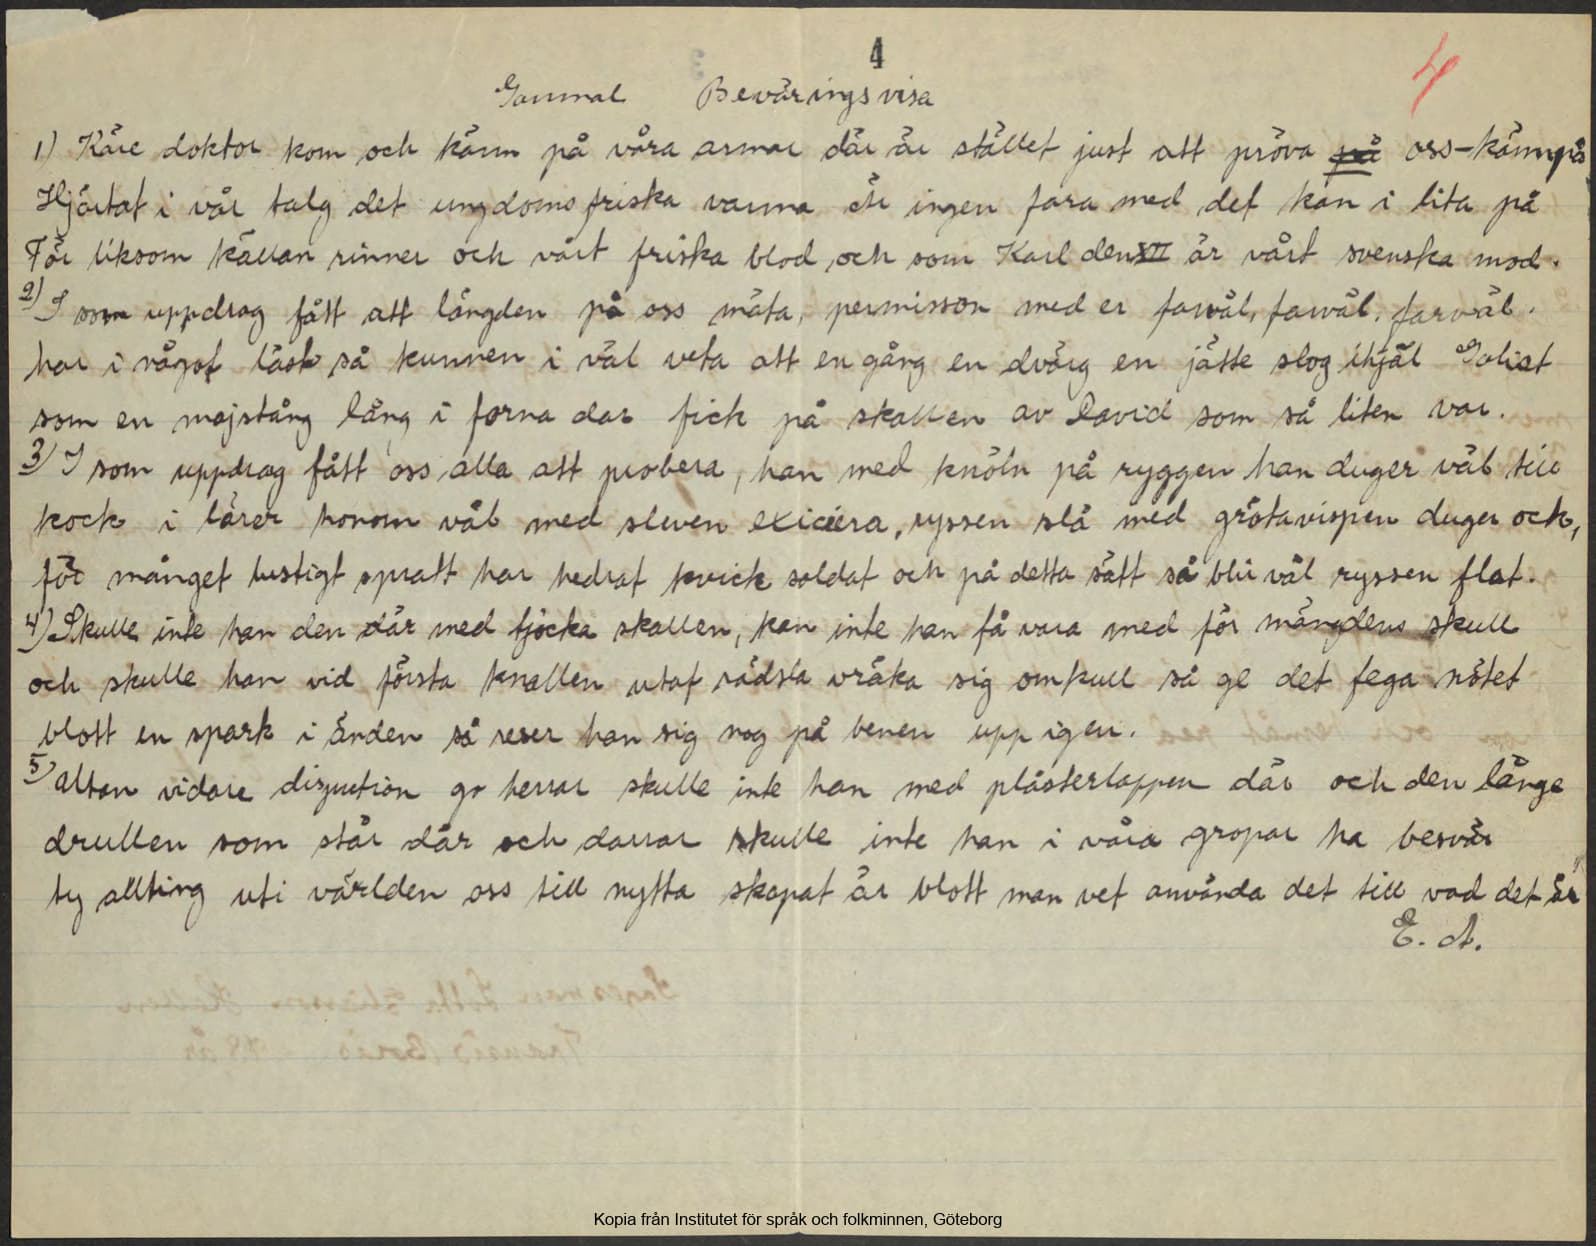 4
4
Gammal Bevärings visa
1) Käre doktor kom och känn på våra armar där är stället just att pröva på oss-känn på
Hjärtat i vår talg det ungdomsfriska varma är ingen fara med det kan i lita på
För liksom källan rinner och vårt friska blod och som Karl den XII är vårt svenska mod.
2) I som uppdrag fått att längden på oss mäta, permisson med er farväl, farväl, farväl.
har i något läst så kunnen i väl veta att en gång en dvärg en jätte slog ihjäl Goliat
som en majstång lång i forna dar fick på skallen av David som så liten var.
3) I som uppdrag fått oss alla att probera, han med knöln på ryggen han duger väl till
kock i lärer honom väl med sleven exiciera, ryssen slå med grötavispen duger ock,
för månget lustigt spratt har hedrat kvick soldat och på detta sätt så blir väl ryssen flat.
4) Skulle inte han den där med tjocka skallen, kan inte han få vara med för mängdens skull
och skulle han vid första knallen utaf rädsla vräka sig omkull så ge det fega nötet
blott en spark i änden så reser han sig nog på benen upp igen.
5) Utan vidare dispuction go herrar skulle inte han med plåsterlappen där och den långe
drullen som står där och darrar skulle inte han i våra gropar ha besvär
ty allting uti världen oss till nytta skapat är blott man vet använda det till vad det är
E. A.
Kopia från Institutet för språk och folkminnen, Göteborg